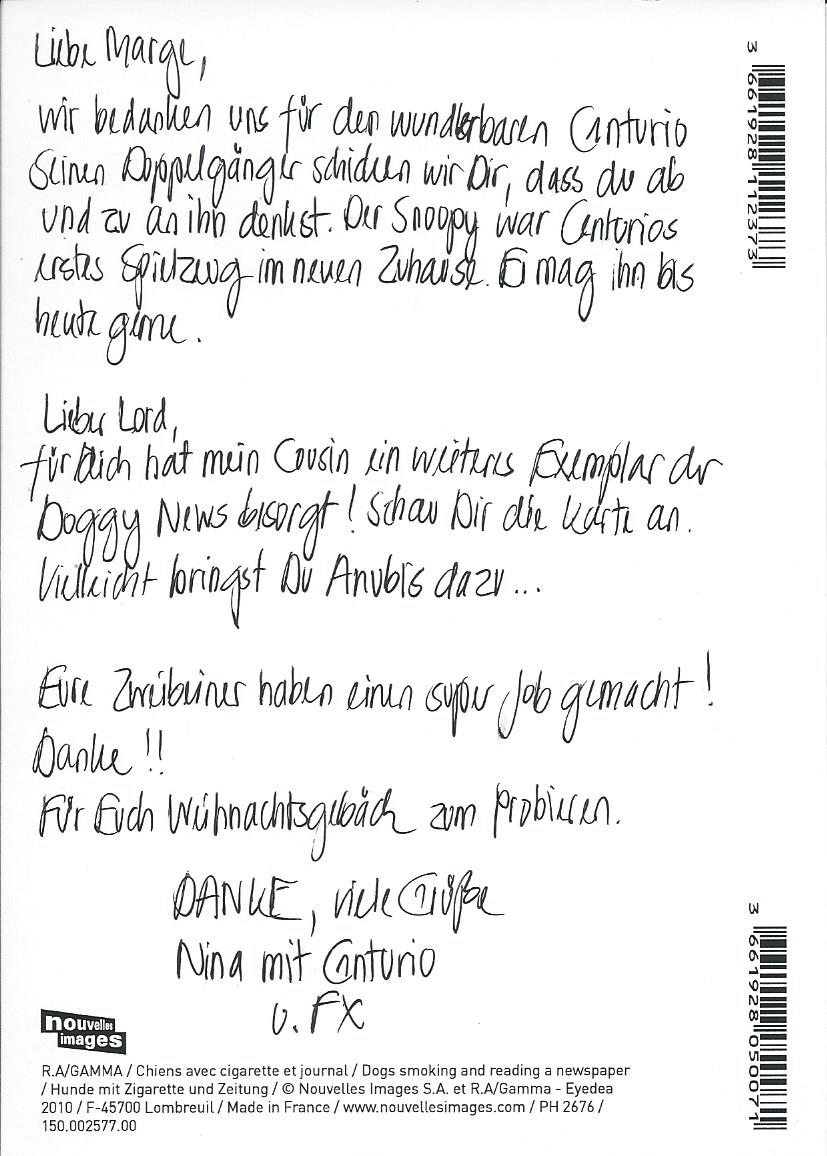 Liebe Marge,
wir bedanken uns für den wunderbaren Centurio
Seinen Doppelgänger schicken wir Dir, dass du ab
und zu an ihn denkst. Der Snoopy war Centurios
erstes Spielzeug im neuen Zuhause. Er mag ihn bis
heute gerne.
Lieber Lord,
für Dich hat mein Cousin ein weiteres Exemplar der
Doggy News besorgt! Schau Dir die Karte an.
Vielleicht bringst Du Anubis dazu...
Eure Zweibeiner haben einen super Job gemacht!
Danke!!
Für Euch Weihnachtsgebäck zum Probieren.
DANKE, viele Grüße
Nina mit Centurio
u. FX
nouvelles
images
R.A/GAMMA / Chiens avec cigarette et journal / Dogs smoking and reading a newspaper
/ Hunde mit Zigarette und Zeitung / © Nouvelles Images S.A. et R.A/Gamma - Eyedea
2010 / F-45700 Lombreuil / Made in France / www.nouvellesimages.com / PH 2676 /
150.002577.00
3 661928 112373
3 661928 050071